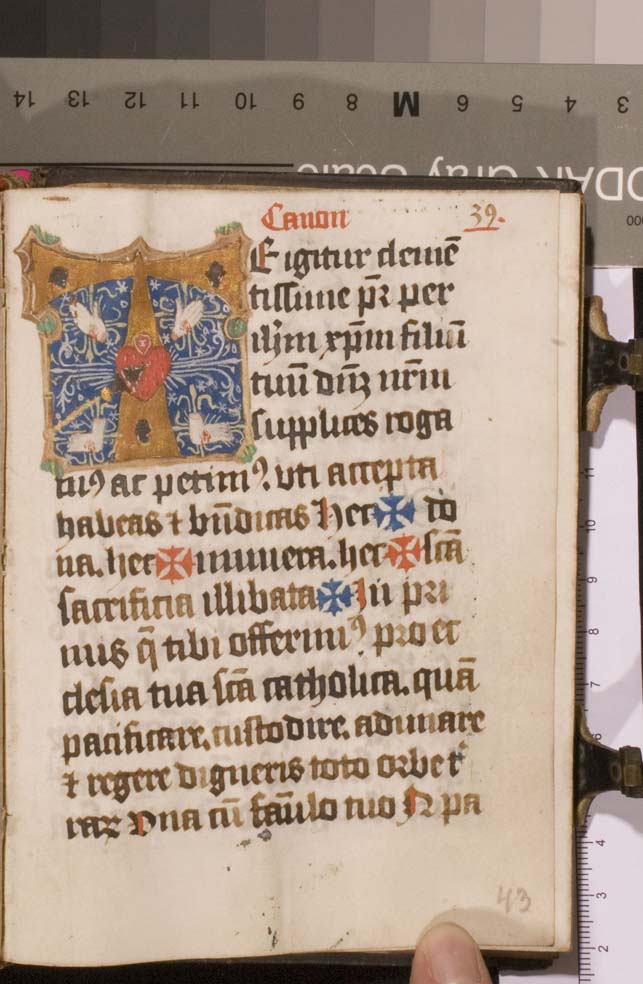 Canon 39.
E igitur clemē
tissime pr̄ per
ihm̄ xp̄m filiū
tuū dn̄ꝫ nrm̄
supplices roga
muꝰ ac petimꝰ. vti accepta
habeas ⁊ bn̄dicas Hec ✠ do
na. hec ✠ munera. hec ✠ scā
sacrificia illibata ✠ In pri
mis q̄ tibi offerimꝰ pro ec
clesia tua scā catholica. quā
pacificare. custodire. adunare
⁊ regere digneris toto orbe tͥ
raꝝ Vna cū fāulo tuo N pa
43
14 13 12 11 10 9 8 M 6 5 4 3
11
10
9
8
7
6
4
3
2